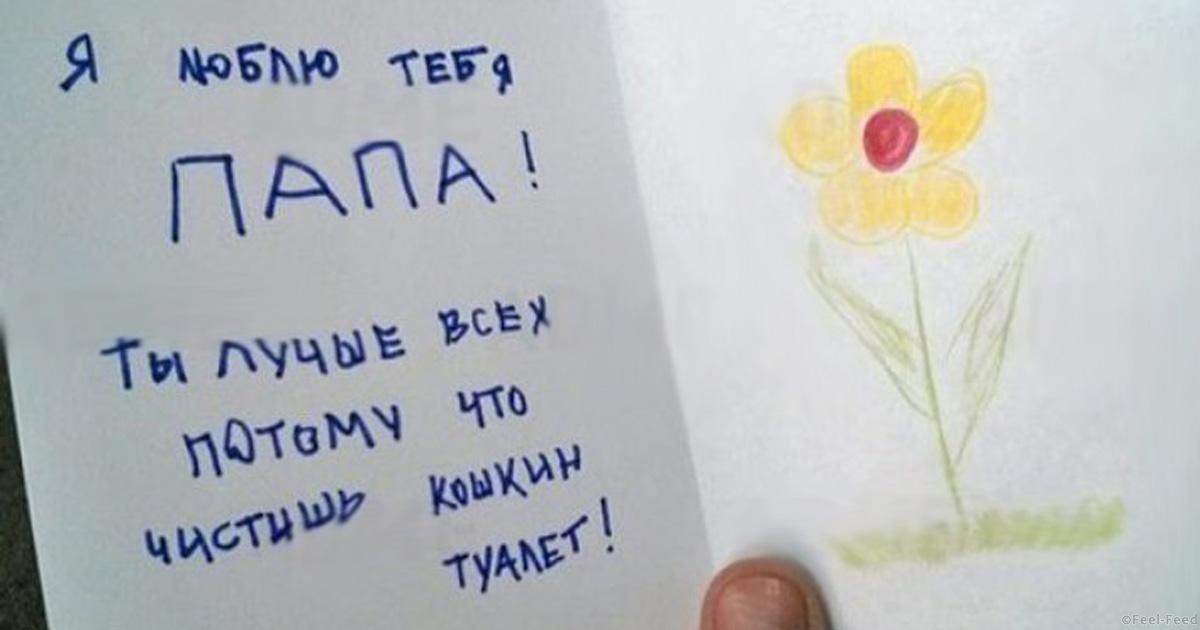 Я люблю тебя
ПАПА!
Ты лучые всех
потому что
чистишь кошкин
туалет!
©Feel-Feed